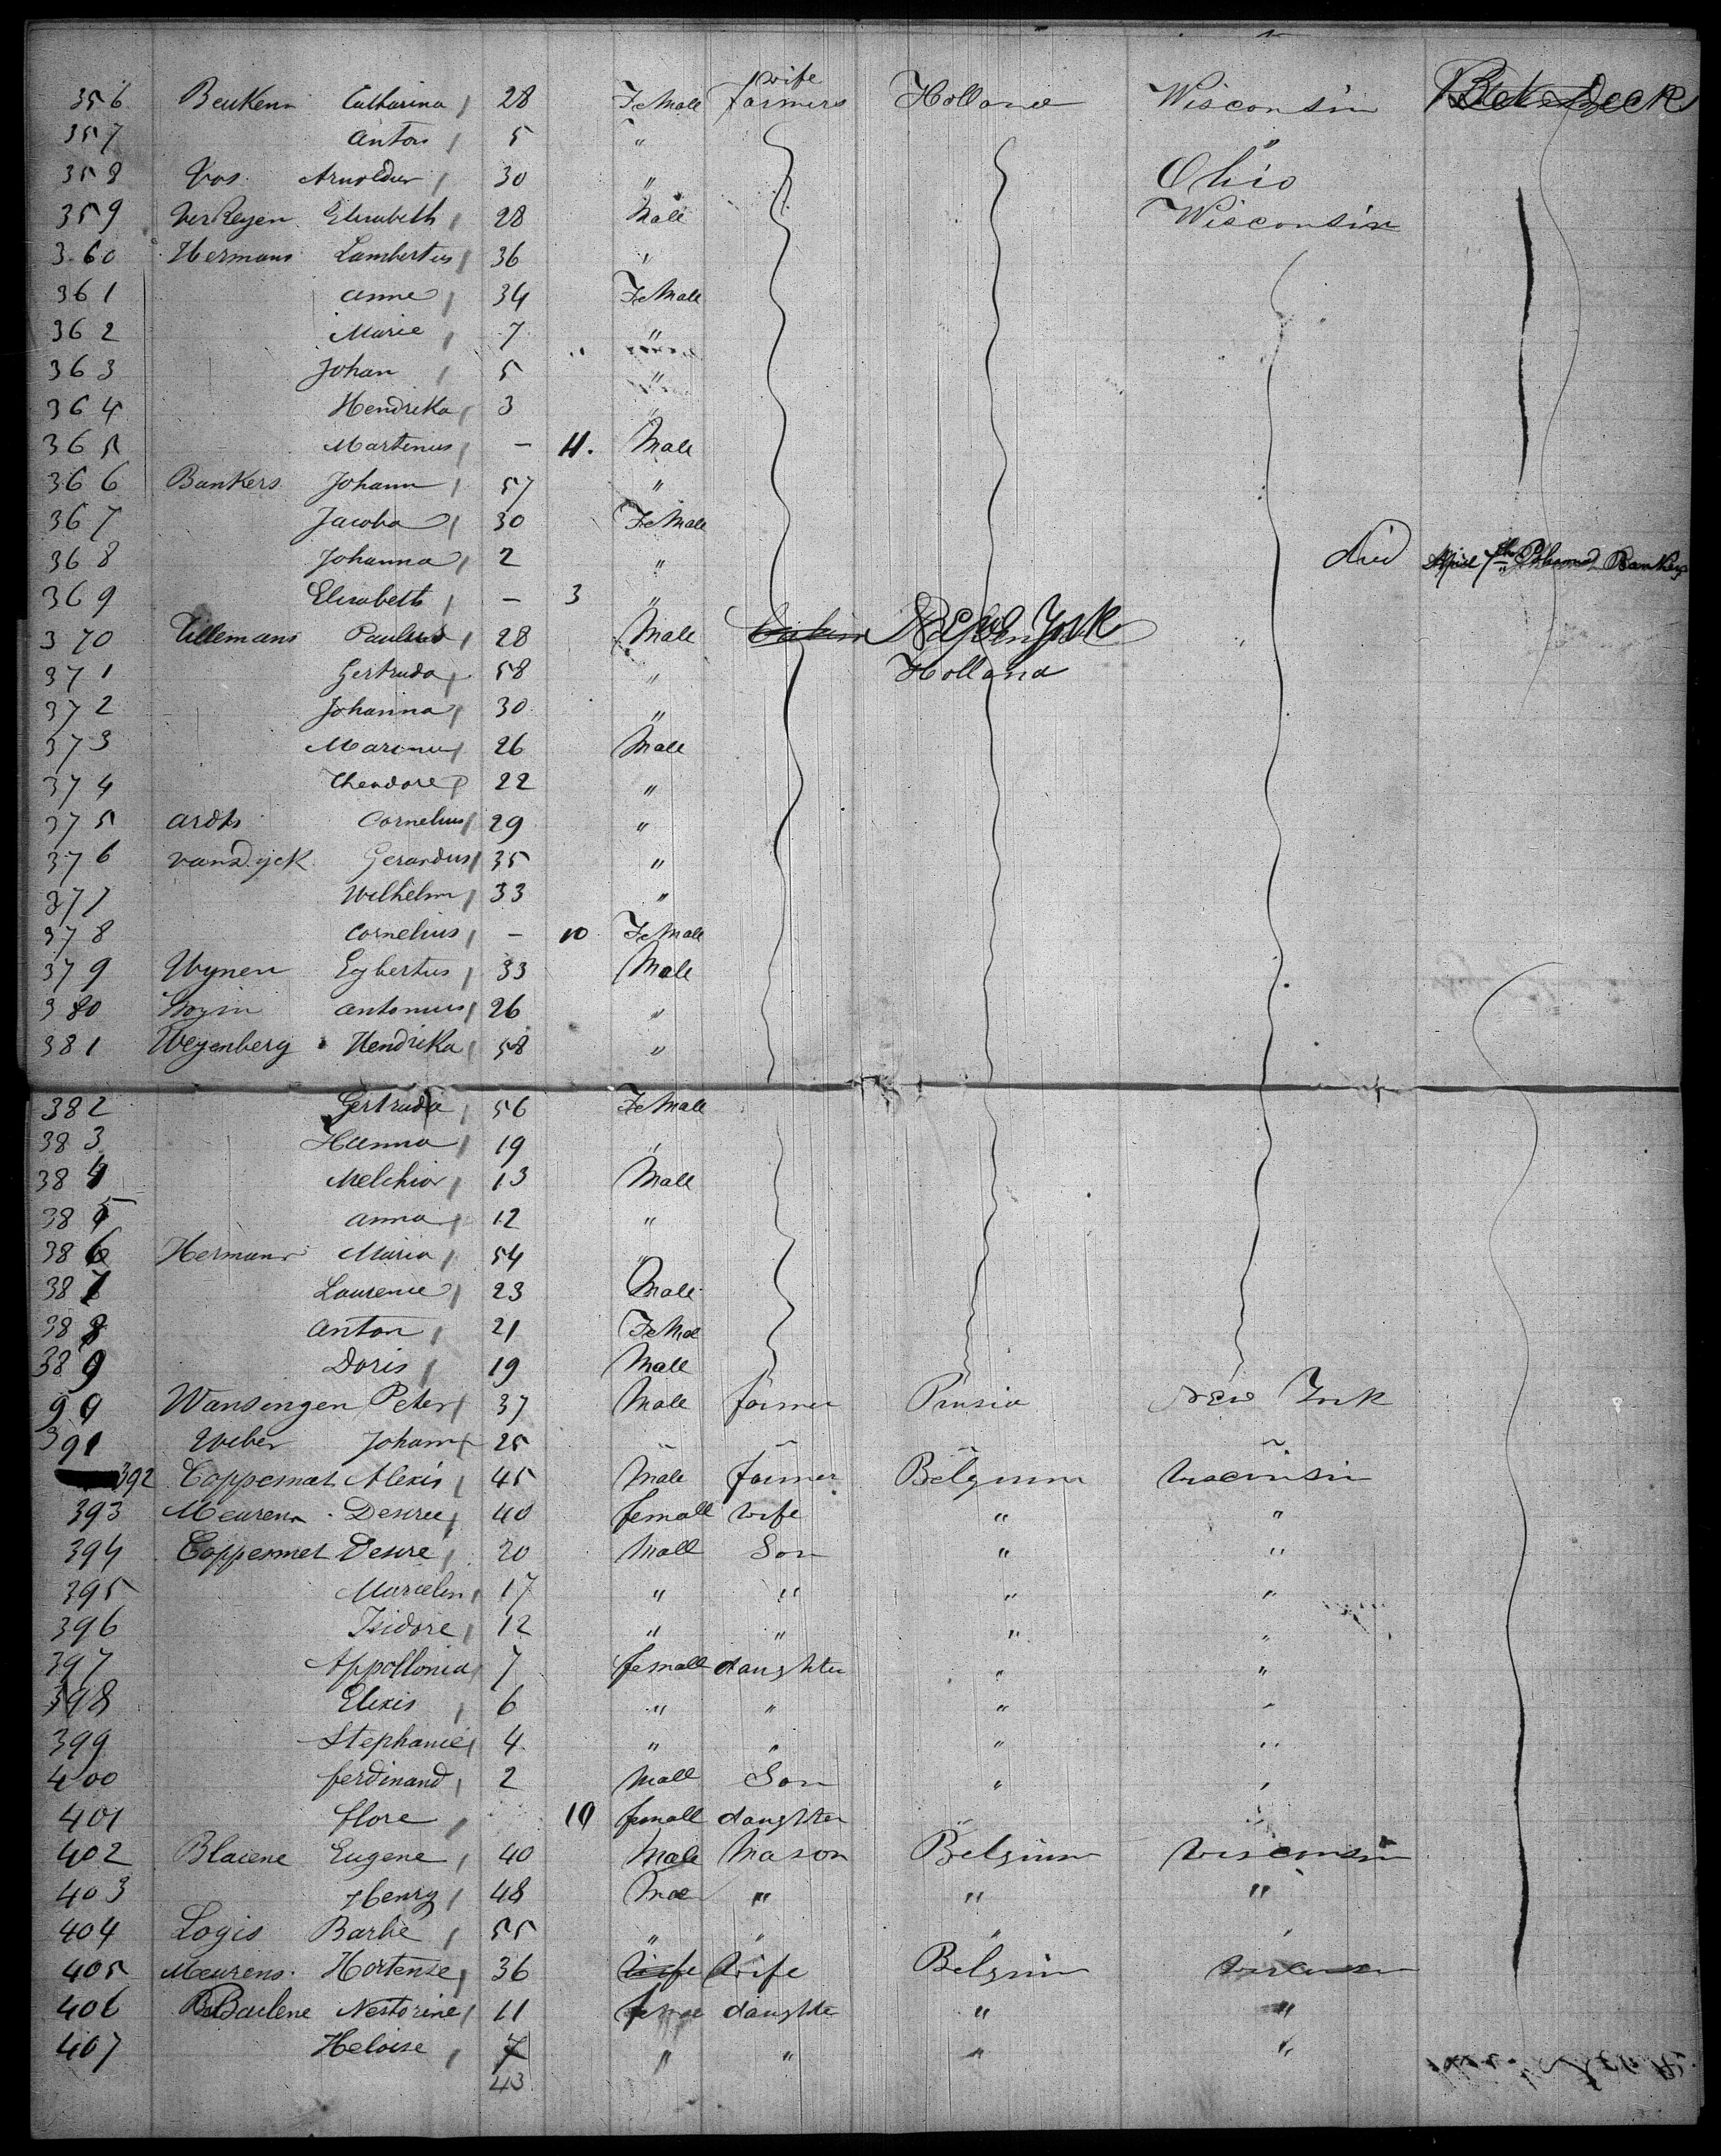 356 Beukenn Catharina 28 FeMale farmers wife Holland Wisconsin
357 Anton 5 " "
358 Vos Arnoldus 30 " Ohio
359 VerKeyen Elisabeth 28 Male Wisconsin
360 Hermans Lambertus 36 "
361 Anne 34 FeMale
362 Marie 7 "
363 Johan 5 "
364 Hendrika 3 "
365 Martinus — 11. Male
366 Bankers Johann 57 "
367 Jacoba 30 FeMale
368 Johanna 2 " died April 7th Bankers
369 Elisabeth — 3 "
370 Tillemans Paulus 28 Male
371 Gertruda 58 " Holland
372 Johanna 30 "
373 Marinus 26 Male
374 Theodore 22 "
375 Ardts Cornelius 29 "
376 van Dyck Gerardus 35 "
377 Wilhelm 33 "
378 Cornelius — 10 FeMale
379 Wynen Egbertus 33 Male
380 Antonius 26 "
381 Weyenberg Hendrika 58 "
382 Gertruda 56 FeMale
383 Hanna 19 "
384 Melchior 13 Male
385 Anna 12 "
386 Hermans Maria 54 "
387 Laurence 23 Male
388 Anton 21 FeMal
389 Doris 19 Male
90 Wansingen Peter 37 Male farmer Prusia New York
391 Weber Johann 25 " " " "
392 Coppesmet Alexis 45 Male farmer Belgium Wisconsin
393 Meurens Desiree 40 femall wife " "
394 Coppesmet Desire 20 Mall Son " "
395 Marcelin 17 " " " "
396 Isidore 12 " " " "
397 Appollonia 7 femall daughter " "
398 Elixis 6 " " " "
399 Stephanie 4 " " " "
400 ferdinand 2 Mall Son " "
401 flore 10 femall daughter " "
402 Blaiene Eugene 40 Male Mason Belgium Wisconsin
403 Henry 48 Mae " " "
404 Logis Barbe 55 " " " "
405 Meurens Hortense 36 Wife Wife Belgium
406 Nestorine 11 daughte " "
407 Heloise 7 " " " "
43